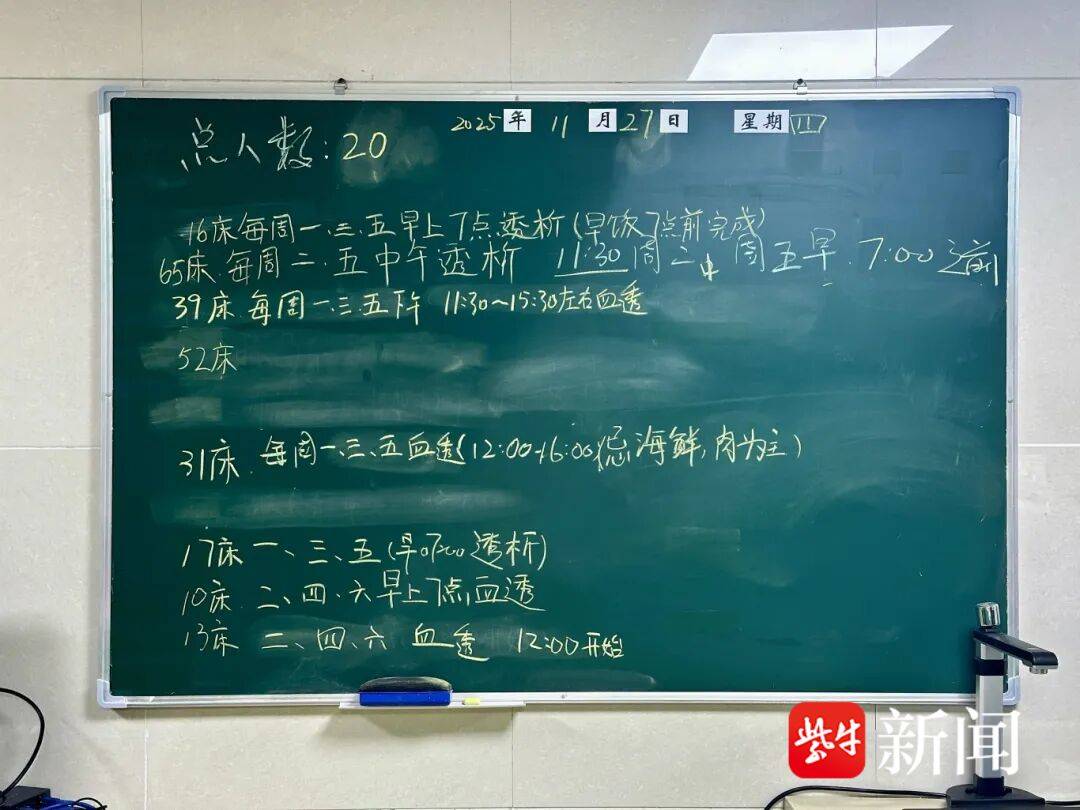 2025年 11月27日 星期四
总人数:20
16床每周一、三、五早上7点透析(早饭7点前完成)
65床.每周二、五中午透析 11:30周二中 周五早.7:00之前
39床.每周一.三.五下午 11:30~15:30左右血透
52床
31床.每周一、三、五血透(12:00-16:00 忌海鲜,肉为主)
17床 一、三、五(早07:00透析)
10床.二、四、六早上7点血透
13床 二、四、六 血透 12:00开始
紫牛新闻